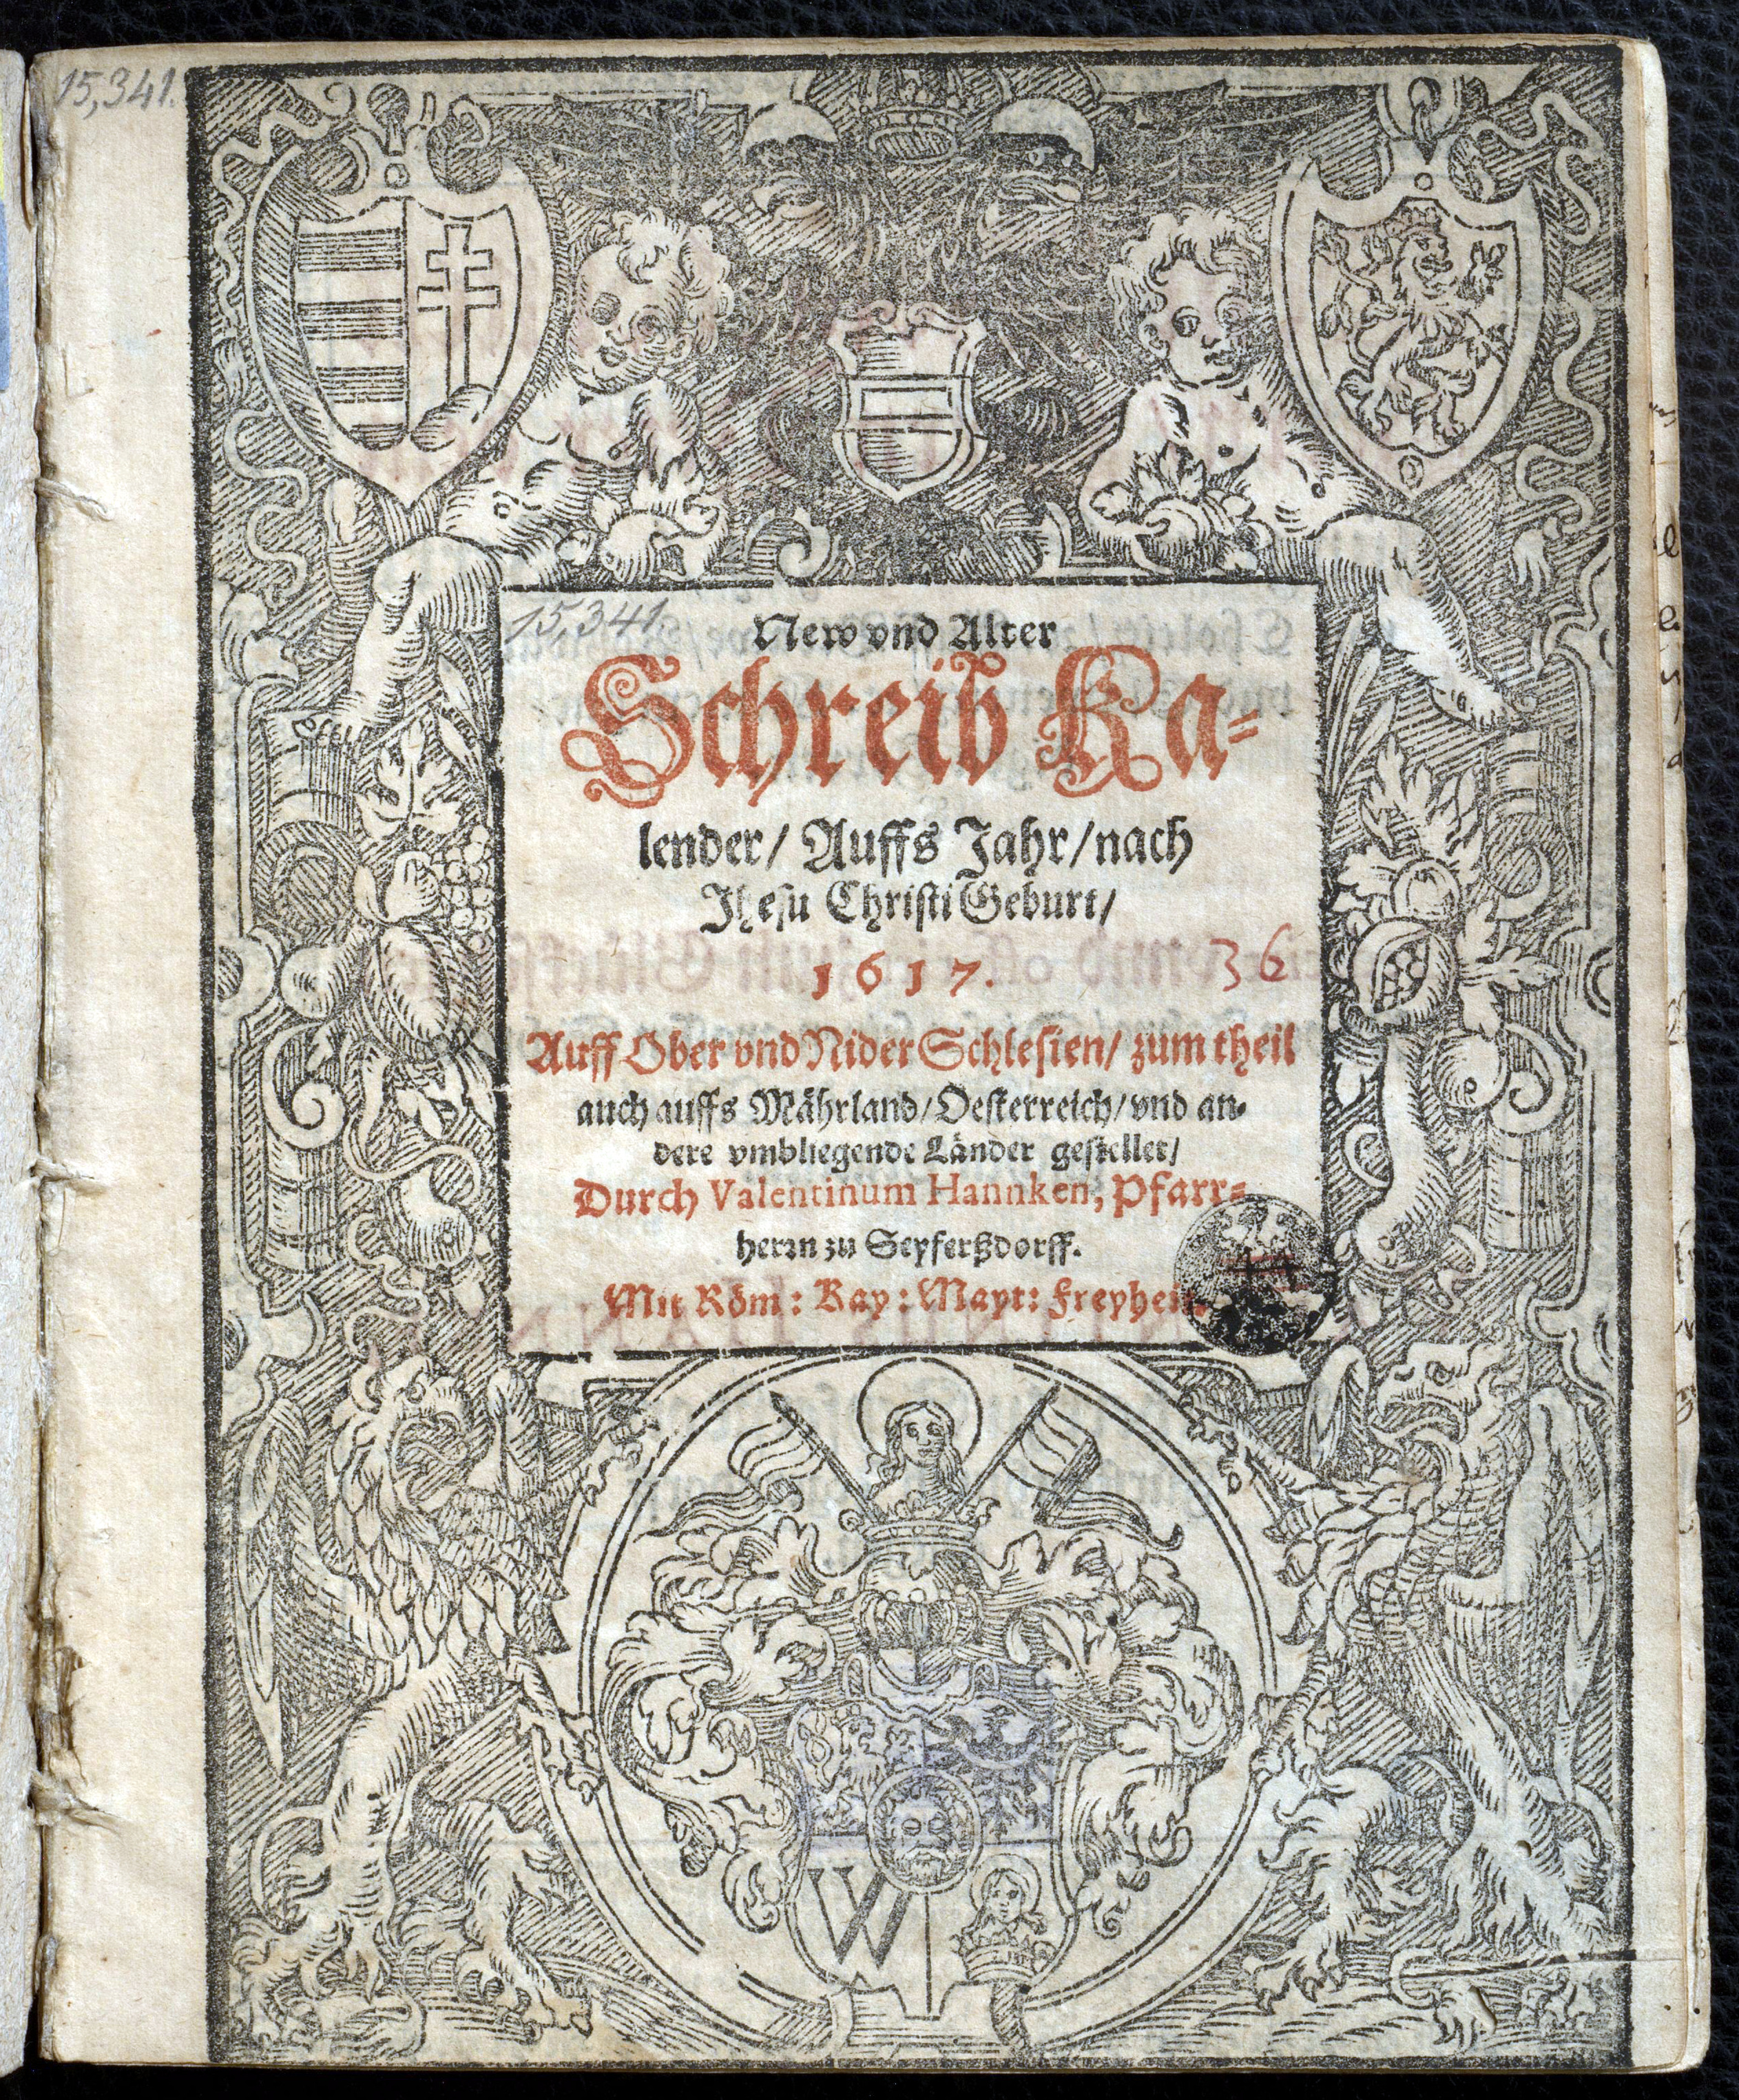 15,341.
15,341.
New vnd Alter
Schreib Ka-
lender/ Auffs Jahr/nach
Jhesu Christi Geburt/
1617.
36
Auff Ober vnd Nider Schlesien/ zum theil
auch auffs Mährland/Oesterreich/vnd an-
dere vmbliegende Länder gestellet/
Durch Valentinum Hannken, Pfarr-
herrn zu Seyferßdorff.
Mit Röm: Kay: Mayt: Freyheit.
W